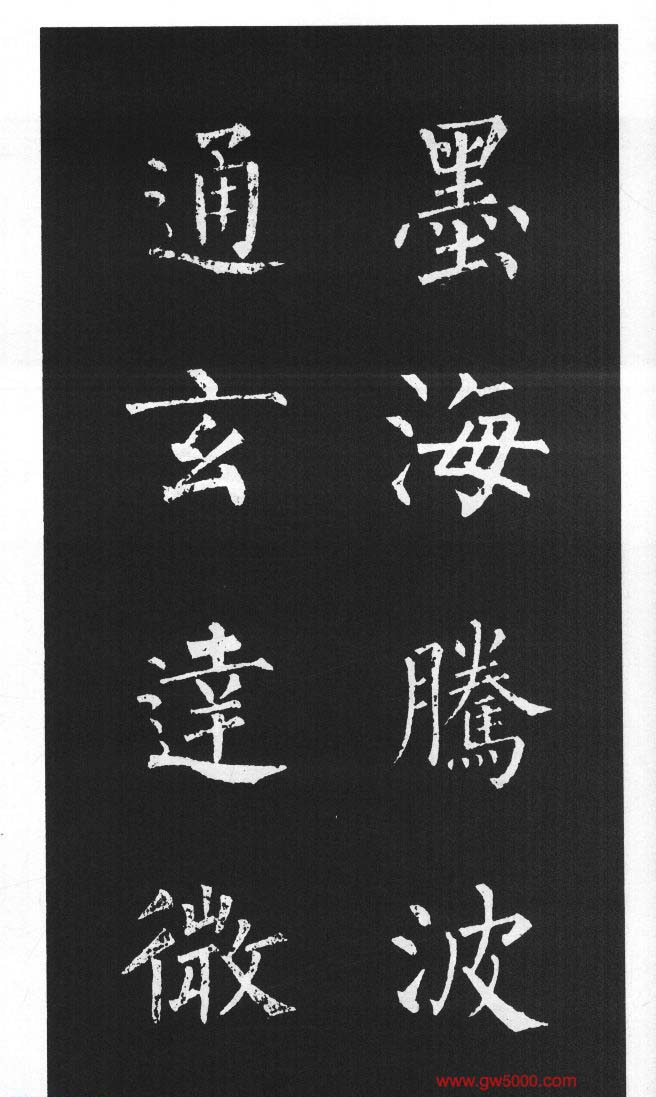 墨海騰波
通玄達微
www.gw5000.com